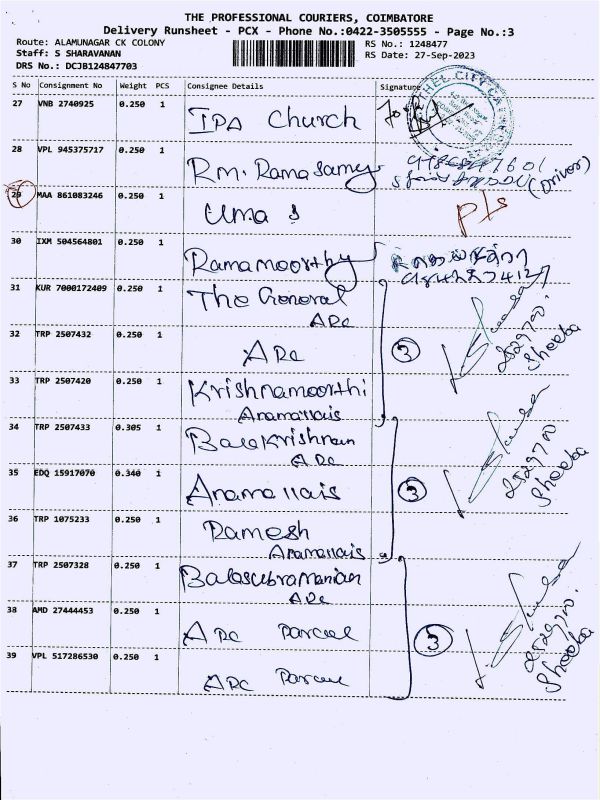 THE PROFESSIONAL COURIERS, COIMBATORE
Delivery Runsheet - PCX - Phone No.:0422-3505555 - Page No.:3
Route: ALAMUNAGAR CK COLONY
RS No.: 1248477
Staff: S SHARAVANAN
RS Date: 27-Sep-2023
DRS No.: DCJB124847703
S No Consignment No Weight PCS Consignee Details Signature
27 VNB 2740925 0.250 1 IPA Church
28 VPL 945375717 0.250 1 Rm. Ramasamy (Driver)
29 MAA 861083246 0.250 1 Uma S P/s
30 IXM 504564801 0.250 1 Ramamoorthy
31 KUR 7000172409 0.250 1 The General
ARC
32 TRP 2507432 0.250 1 ARC 3 2529700. Sheeba
33 TRP 2507420 0.250 1 Krishnamoorthi
Anamallais
34 TRP 2507433 0.305 1 Balakrishnan
ARC
35 EDQ 15917070 0.340 1 Anamallais 3 2529700 Sheeba
36 TRP 1075233 0.250 1 Ramesh
Anamallais
37 TRP 2507328 0.250 1 Balasubramanian
ARC
38 AMD 27444453 0.250 1 ARC Parcel 3 2529700. Sheeba
39 VPL 517286530 0.250 1 ARC Parcel